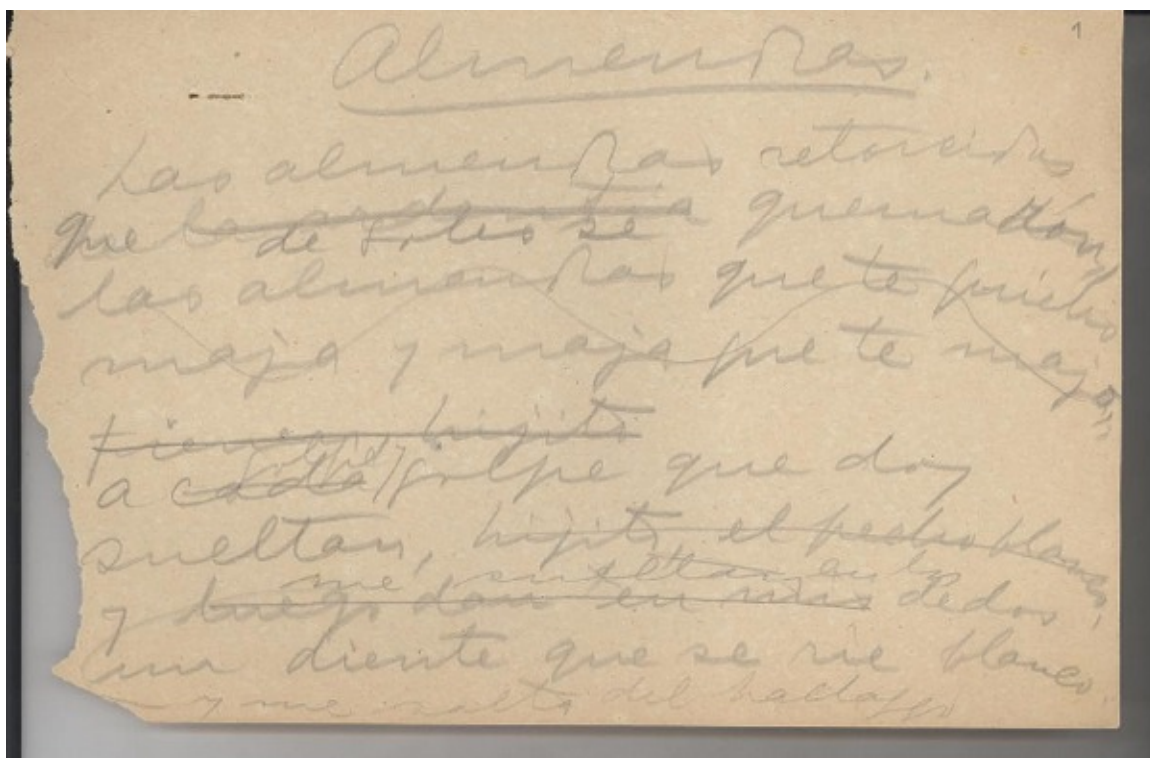 1
Almendras.
Las almendras retorcidas
que
de se quemadon,
las almendras que te
maja y maja que te maja
tienen, hijito
golpe,
a cada golpe que doy
sueltan, hijito, el pecho blanco,
me sueltan en los
y luego dan en mis dedos
un diente que se rie blanco.
y me salta del hallazgo